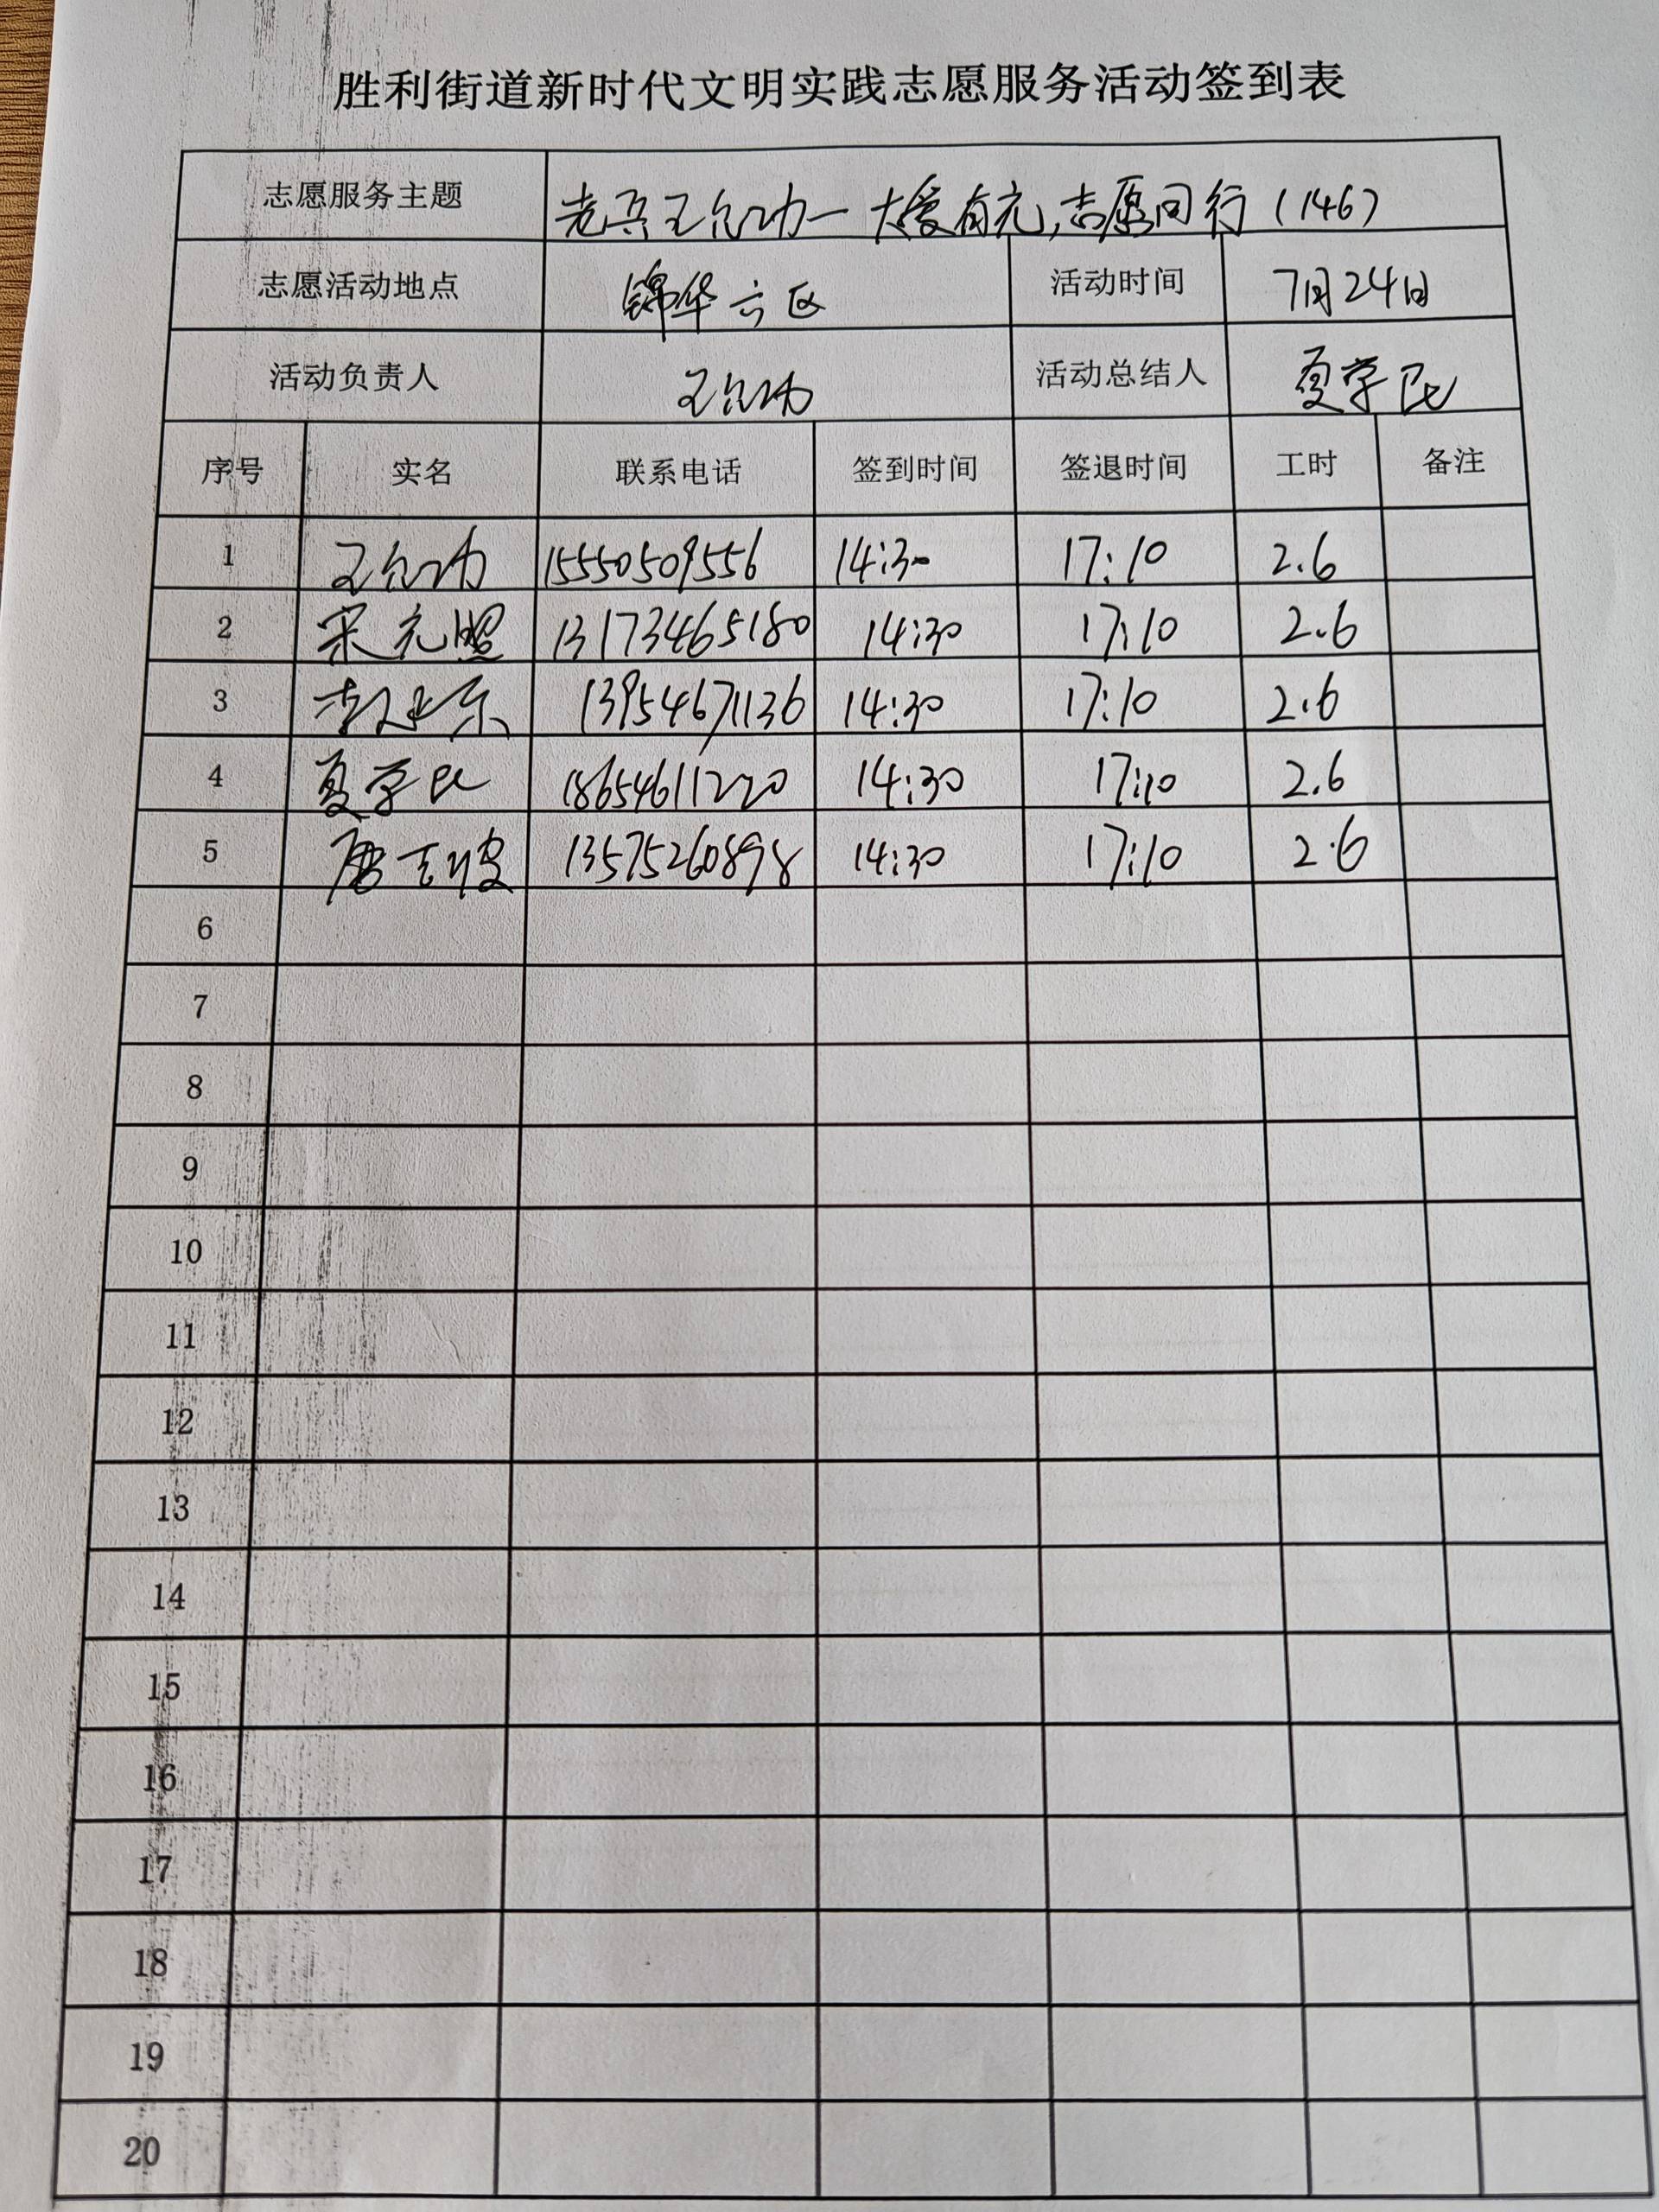 胜利街道新时代文明实践志愿服务活动签到表
志愿服务主题 老兵王允功一大爱有元,志愿同行(146)
志愿活动地点 锦华六区 活动时间 7月24日
活动负责人 王允功 活动总结人 夏学民
序号 实名 联系电话 签到时间 签退时间 工时 备注
1 王允功 15550509556 14:30 17:10 2.6
2 宋元照 13173465180 14:30 17:10 2.6
3 13954671136 14:30 17:10 2.6
4 夏学民 18654611220 14:30 17:10 2.6
5 唐志波 13575260898 14:30 17:10 2.6
6
7
8
9
10
11
12
13
14
15
16
17
18
19
20